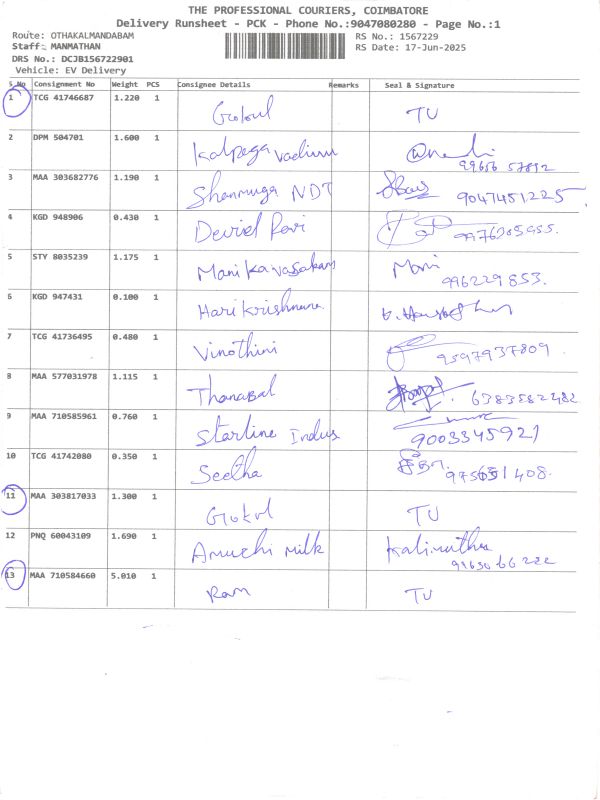 THE PROFESSIONAL COURIERS, COIMBATORE
Delivery Runsheet - PCK - Phone No.:9047080280 - Page No.:1
Route: OTHAKALMANDABAM RS No.: 1567229
Staff: MANMATHAN RS Date: 17-Jun-2025
DRS No.: DCJB156722901
Vehicle: EV Delivery
S.No Consignment No Weight PCS Consignee Details Remarks Seal & Signature
1 TCG 41746687 1.220 1 Gokul TU
2 DPM 504701 1.600 1 Kalpaga
3 MAA 303682776 1.190 1 Shanmuga NDT 9047451225
4 KGD 948906 0.430 1
5 STY 8035239 1.175 1 Manikavasakam Mani
996229853.
6 KGD 947431 0.100 1 Hari Krishnana
7 TCG 41736495 0.480 1 Vinothini 9597937809
8 MAA 577031978 1.115 1 Thanabal 6383582482
9 MAA 710585961 0.760 1 Starline Indus
9003345921
10 TCG 42742080 0.350 1 Seetha சீதா
11 MAA 303817033 1.300 1 Gokul TU
12 PNQ 60043109 1.690 1 Milk Kalimuthu
13 MAA 710584660 5.010 1 Ram TU